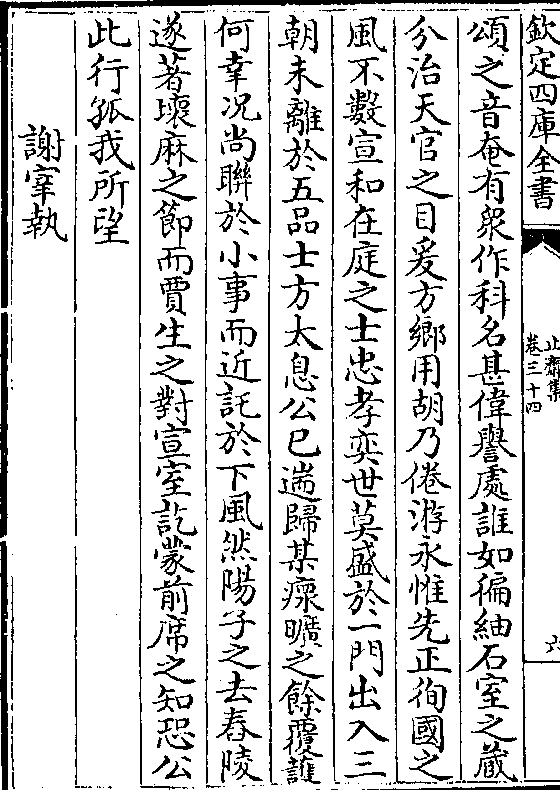 欽定四庫全書
止齋集
卷三十四
六
頌之音奄有衆作科名甚偉譽處誰如徧紬石室之蔵
分治天官之目爰方鄉用胡乃倦游永惟先正徇國之
風不數宣和在庭之士忠孝奕世莫盛於一門出入三
朝未離於五品士方太息公已遄歸某瘝曠之餘覆護
何幸况尚聯於小事而近託於下風然陽子之去舂陵
遂著壊麻之節而賈生之對宣室訖蒙前席之知恐公
此行孤我所望
謝宰執